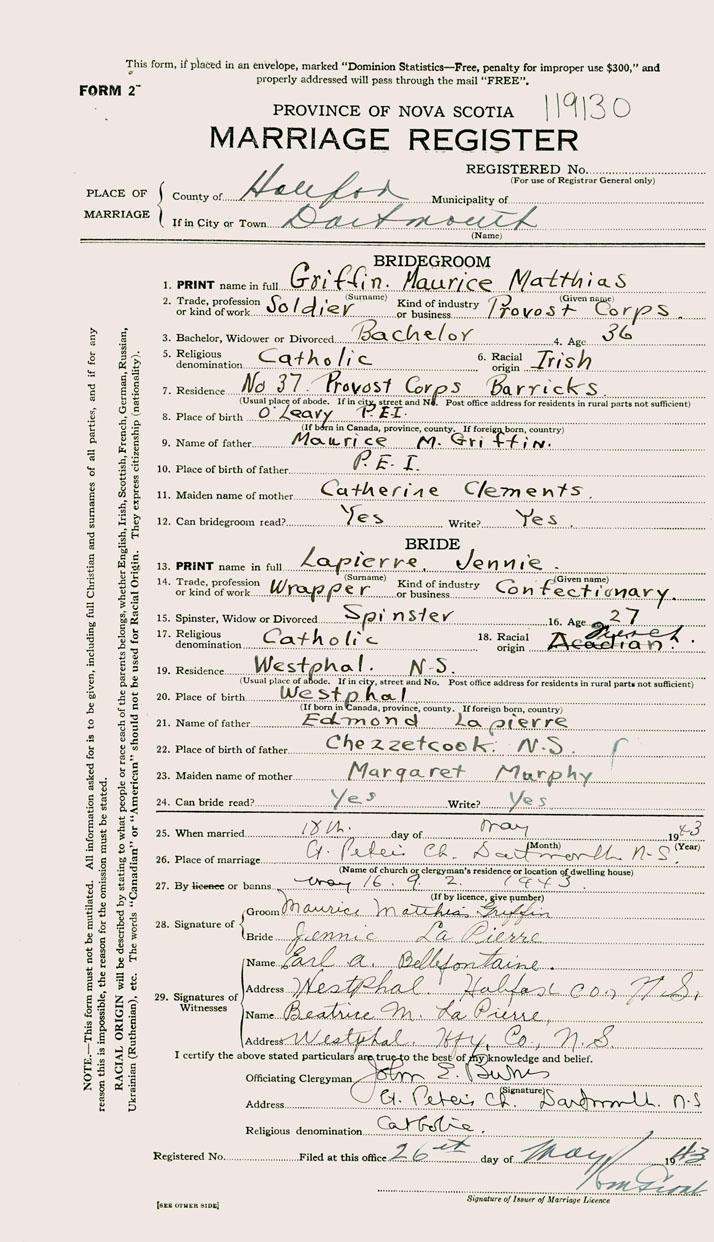 This form, if placed in an envelope, marked "Dominion Statistics—Free, penalty for improper use $300," and
properly addressed will pass through the mail "FREE".
FORM 2
PROVINCE OF NOVA SCOTIA 119130
MARRIAGE REGISTER
REGISTERED No.
(For use of Registrar General only)
PLACE OF MARRIAGE
County of Halifax Municipality of
If in City or Town Dartmouth
(Name)
BRIDEGROOM
1. PRINT name in full Griffin. Maurice Matthias
(Surname) (Given name)
2. Trade, profession or kind of work Soldier Kind of industry or business Provost Corps.
3. Bachelor, Widower or Divorced Bachelor 4. Age 36
5. Religious denomination Catholic 6. Racial origin Irish
7. Residence No 37 Provost Corps Barricks.
(Usual place of abode. If in city, street and No. Post office address for residents in rural parts not sufficient)
8. Place of birth O'Leary P.E.I.
(If born in Canada, province, county. If foreign born, country)
9. Name of father Maurice M. Griffin.
10. Place of birth of father P.E.I.
11. Maiden name of mother Catherine Clements.
12. Can bridegroom read? Yes Write? Yes.
BRIDE
13. PRINT name in full Lapierre, Jennie.
(Surname) (Given name)
14. Trade, profession or kind of work Wrapper Kind of industry or business Confectionary.
15. Spinster, Widow or Divorced Spinster 16. Age 27
17. Religious denomination Catholic 18. Racial origin Acadian. French.
19. Residence Westphal. N.S.
(Usual place of abode. If in city, street and No. Post office address for residents in rural parts not sufficient)
20. Place of birth Westphal
(If born in Canada, province, county. If foreign born, country)
21. Name of father Edmond Lapierre
22. Place of birth of father Chezzetcook. N.S.
23. Maiden name of mother Margaret Murphy
24. Can bride read? Yes Write? Yes
25. When married 18th. day of May 1943
(Month) (Year)
26. Place of marriage St. Peter's Ch. Dartmouth N.S.
(Name of church or clergyman's residence or location of dwelling house)
27. By licence or banns May 16. 9. 2. 1943.
(If by licence, give number)
28. Signature of
Groom Maurice Matthias Griffin
Bride Jennie La Pierre
29. Signatures of Witnesses
Name Earl A. Bellefontaine.
Address Westphal. Halifax Co., N.S.
Name Beatrice M. La Pierre,
Address Westphal. Hfx, Co., N.S.
I certify the above stated particulars are true to the best of my knowledge and belief.
Officiating Clergyman John E. Burns
(Signature)
Address St. Peter's Ch. Dartmouth. N.S
Religious denomination Catholic.
Registered No. Filed at this office 26th day of May 1943
Signature of Issuer of Marriage Licence
[SEE OTHER SIDE]
NOTE.—This form must not be mutilated. All information asked for is to be given, including full Christian and surnames of all parties, and if for any
reason this is impossible, the reason for the omission must be stated.
RACIAL ORIGIN will be described by stating to what people or race each of the parents belongs, whether English, Irish, Scottish, French, German, Russian,
Ukrainian (Ruthenian), etc. The words "Canadian" or "American" should not be used for Racial Origin. They express citizenship (nationality).